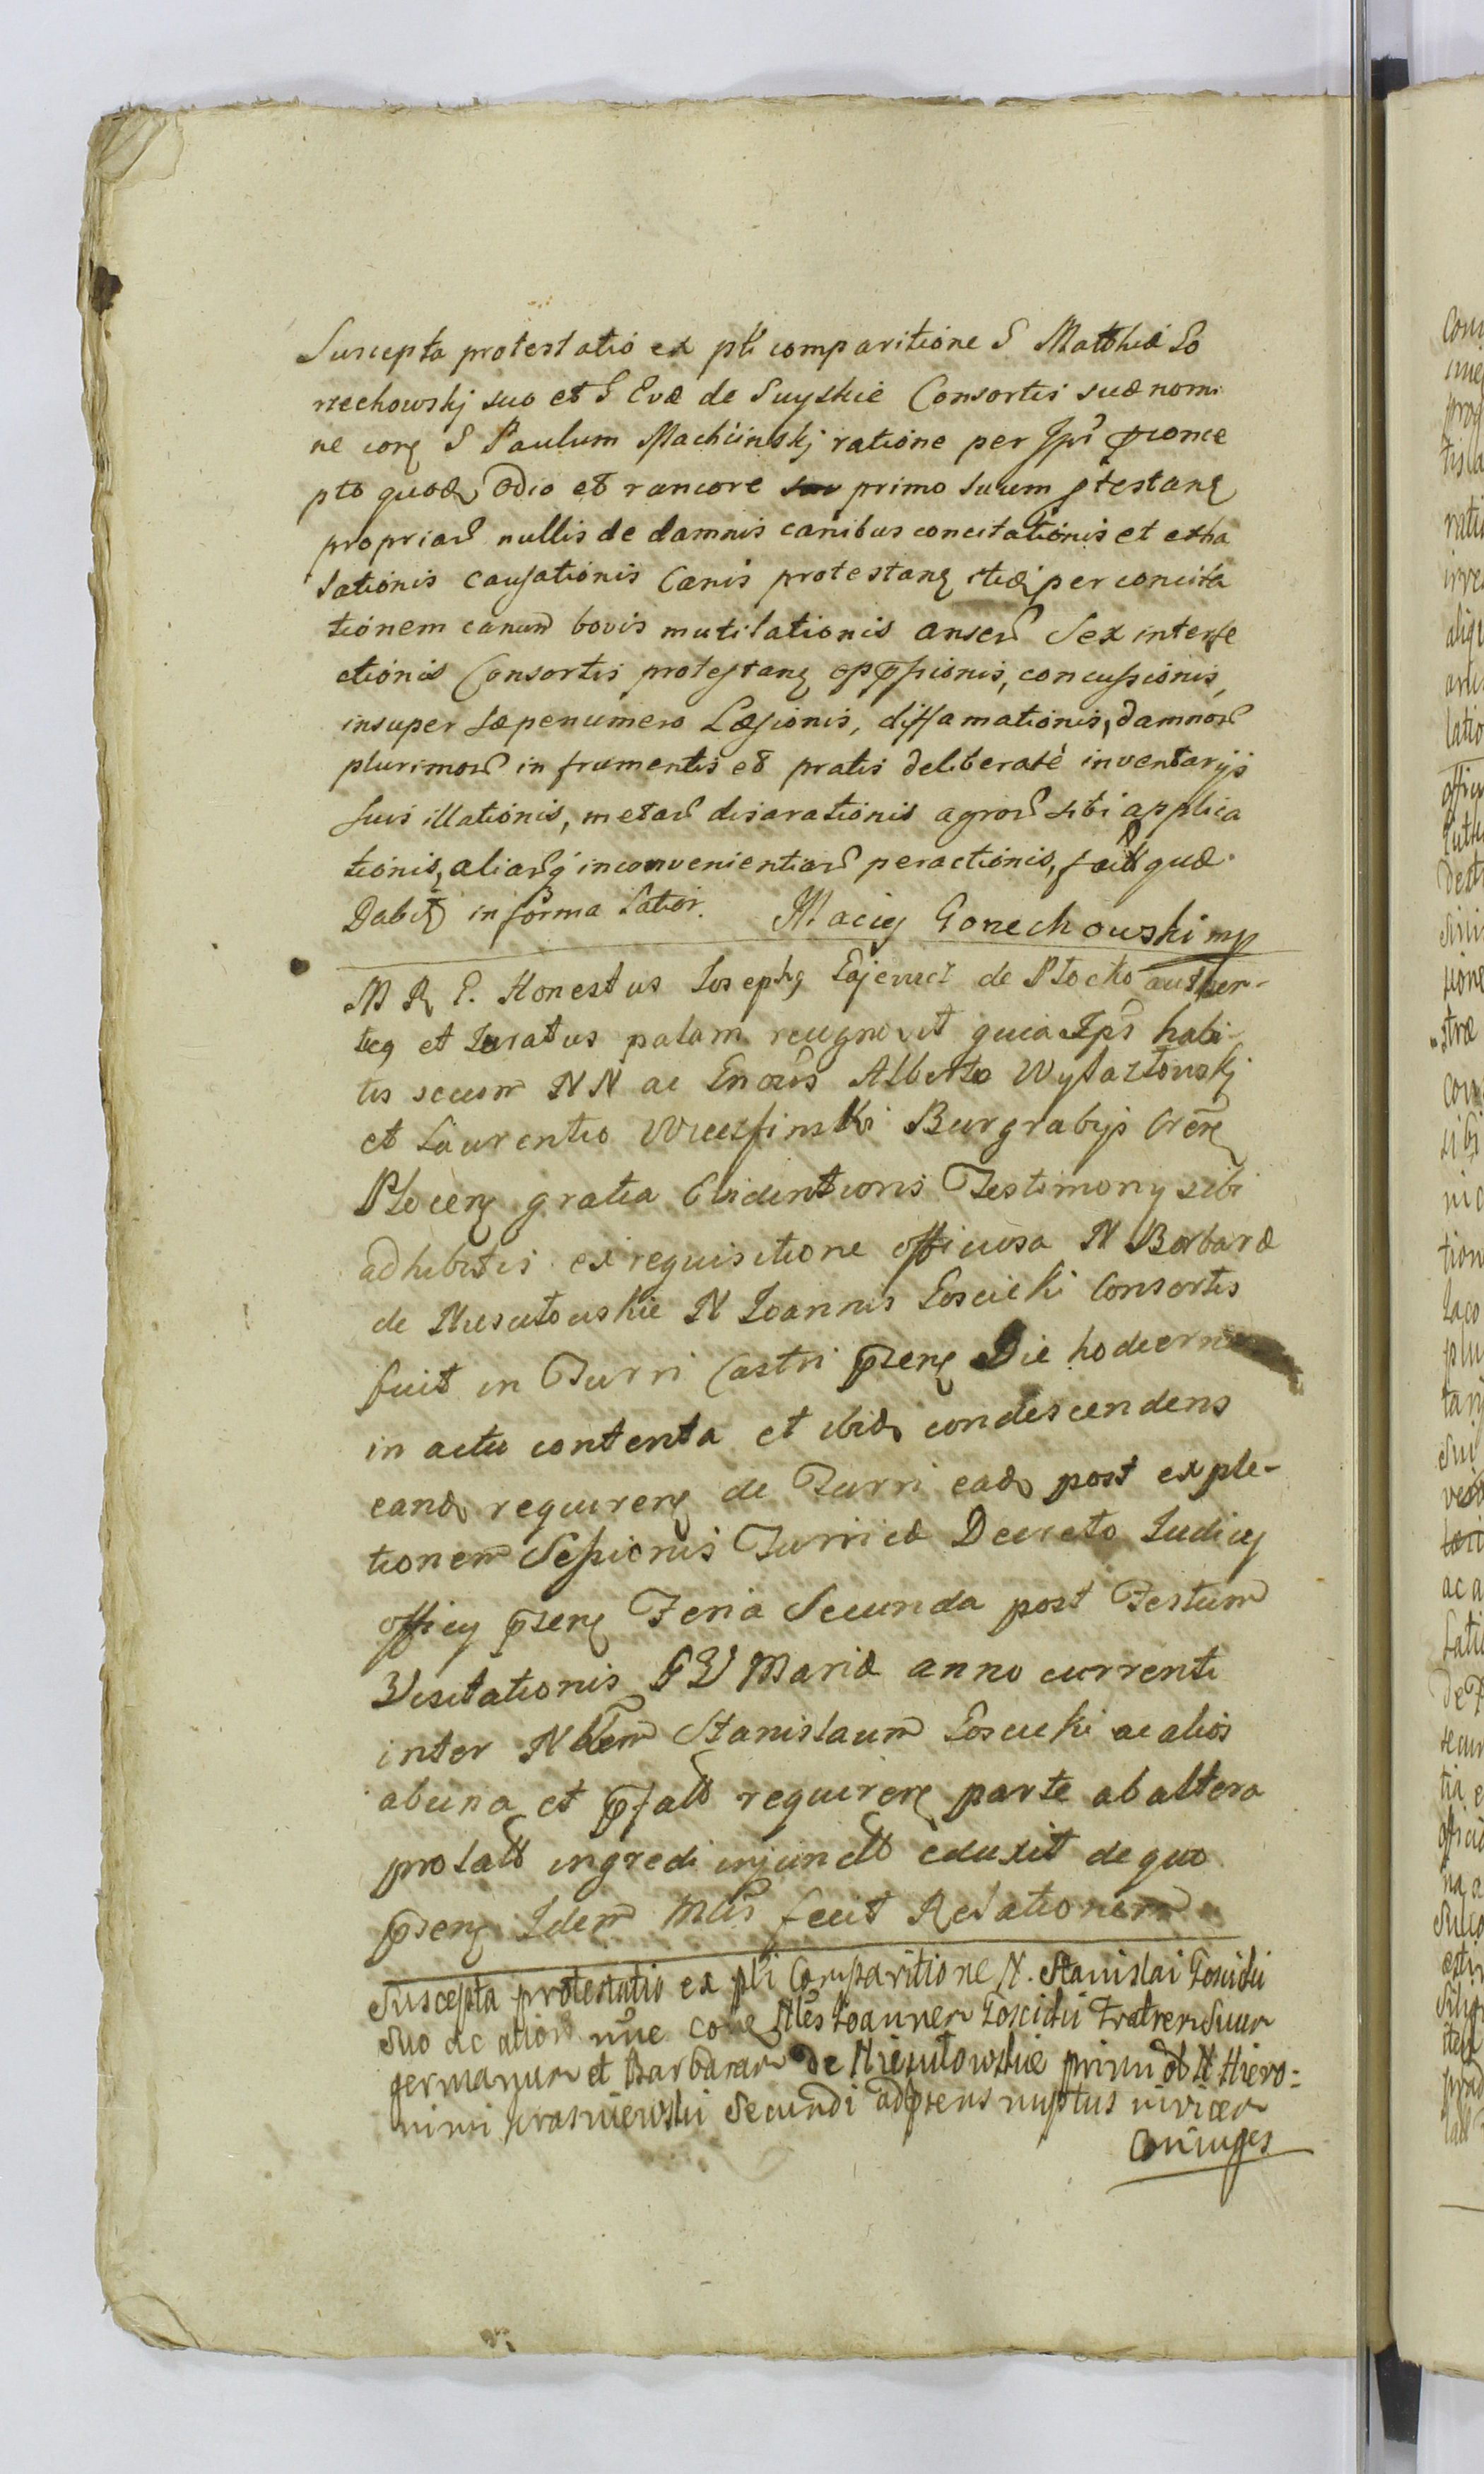 Suscepta protestatio ex pti comparitione G Matthiæ Go
rzechowskj suo et G Evæ de Suyskie Consortis suæ nomi
ne corꝫ G Paulum Machcinskj ratione per Ipm præconce
pto quodã Odio et rancore primo suum ptestanꝫ
propriaꝝ nullis de damnis canibus concitationis et exha
lationis causationis Canis protestanꝫ itidẽ per concita
tionem canum bovis mutilationis anserũ Sex interfe
ctionis Consortis protestanꝫ oppressionis, concussionis,
insuper sæpenumero Læsionis, diffamationis, damnoꝝ
plurimoꝝ in frumentis et pratis deliberatè inventarijs
suis illationis, metaꝝ disarationis agroꝝ sibi applica
tionis, aliarꝝq inconvenientiaꝝ peractionis, quæ
Dabit in forma latior. Maciey Gorzechowski mp
M R G. Honestus Iosephꝰ de Plocko authen-
ticꝰ et Iuratus palam recognovit quia Ips habi-
tis secum NN ac Gnosis Alberto Wylazłowskj
et Laurentio Burgrabijs Crẽnꝫ
Plocenꝫ gratia Evidentioris Testimony sibi
adhibitis ex requisitione officiosa N Barbaræ
de Niesułowskie N Ioannis Łoscicki Consortis
fuit in Turri Castri præsenꝫ Die hodierna
in actu contenta et ibidẽ condescendens
eandẽ requirenꝫ de Turri eadẽ post exple-
tionem Sessionis Turricæ Decreto Iudicy
officy præsenꝫ Feria Secunda post Festum
Visitationis B V Mariæ anno currenti
inter Nblem Stanislaum Łoscicki ac alios
ab una et præfatã requirenꝫ parte ab altera
prolatã ingredi injunctã eduxit de quo
præsenꝫ Idem Mlis fecit Relationem
Suscepta protestatio ex pti Comparitione N. Stanislai Łoscicki
suo ac alioꝝ nñe corꝫ Nles Ioannem Łoscicki Fratrem Suum
germanum et Barbaram de Niesułowskie primi olim N Hiero-
nimi Krasniewski Secundi adpræsens nuptus invicem
Coniuges